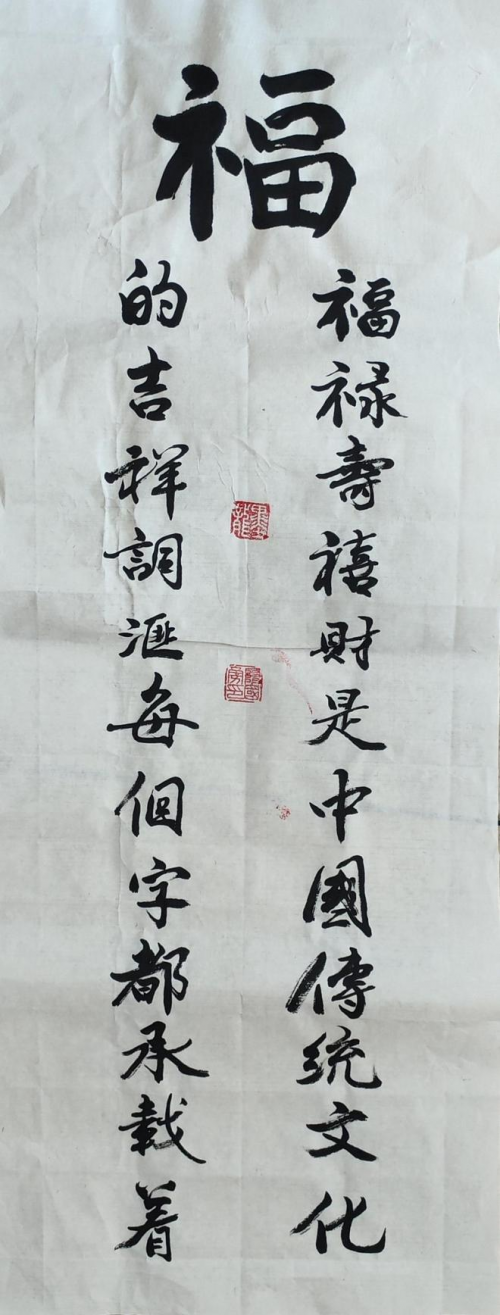 福
福禄壽禧財是中國傳统文化
的吉祥詞滙每個字都承載着